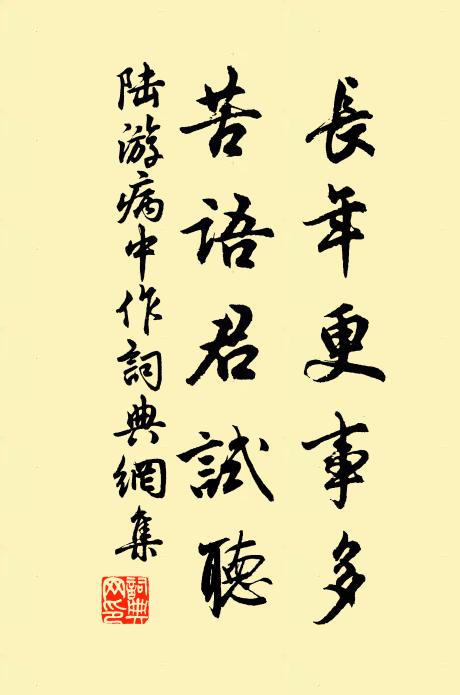 長年更事多
苦語君試聽
陸游病中作詞典網集
詞典網印